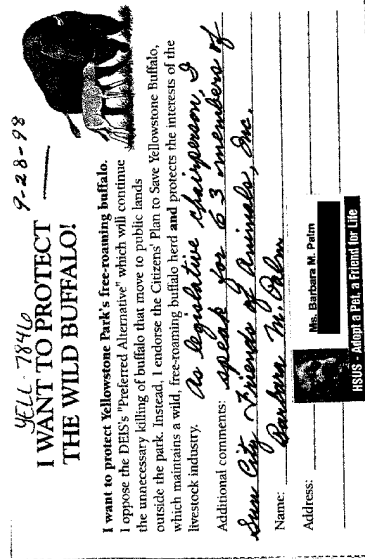 YELL-7846
9-28-98
I WANT TO PROTECT
THE WILD BUFFALO!
I want to protect Yellowstone Park's free-roaming buffalo.
I oppose the DEIS's "Preferred Alternative" which will continue
the unnecessary killing of buffalo that move to public lands
outside the park. Instead, I endorse the Citizens' Plan to Save Yellowstone Buffalo,
which maintains a wild, free-roaming buffalo herd and protects the interests of the
livestock industry. As legislative chairperson, I
Additional comments: speak for 63 members of
Sun City Friends of Animals, Inc.
Name: Barbara M. Palm
Address: Ms. Barbara M. Palm
HSUS - Adopt a Pet, a Friend for Life